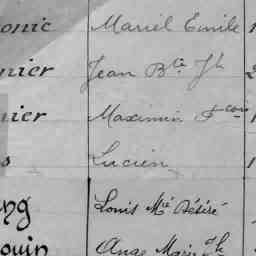 onic Marcel Emile 1
nier Jean Bte Jh 2
nier Maximin Fcois 1
s Lucien 1
ng Louis Mié Désiré
ouin Ange Marie Jh